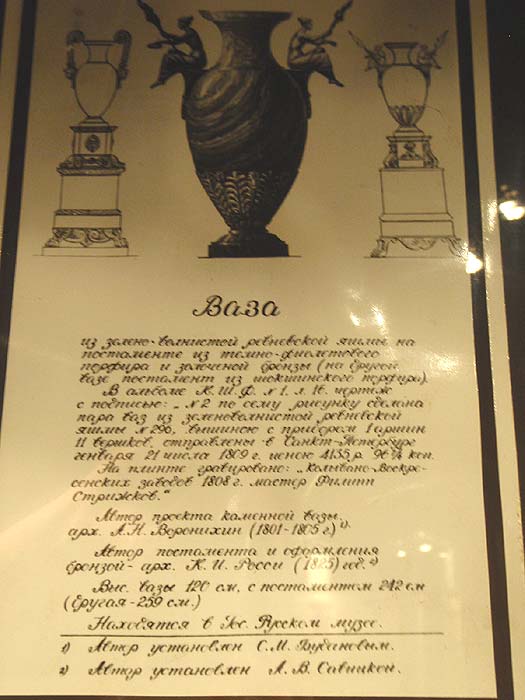 Ваза
из зелено-волнистой ревневской яшмы на
постаменте из темно-фиолетового
порфира и золоченой бронзы (на другой
вазе постамент из шокшинского порфира).
В альбоме К.Ш.Ф. №1. л. 16. чертеж
с подписью: „№2 по сему рисунку сделана
пара ваз из зеленоволнистой ревневской
яшмы №296, вышиною с прибором 1 аршин
11 вершков, отправлены в Санкт-Петербург
генваря 21 числа 1809 г. ценою 4155 р. 96¾ коп.
На плинте гравировано: „Колывано-Воскре-
сенских заводов 1808 г. мастер Филипп
Стрижков."
Автор проекта каменной вазы,
арх. А.Н. Воронихин (1801-1805 г.) ¹⁾
Автор постамента и оформления
бронзой - арх. К.И. Росси (1825) год. ²⁾
Выс. вазы 120 см, с постаментом 242 см
(другая - 259 см.)
Находятся в Гос. Русском музее.
1) Автор установлен С.М. Будановым.
2) Автор установлен А.В. Савицкой.